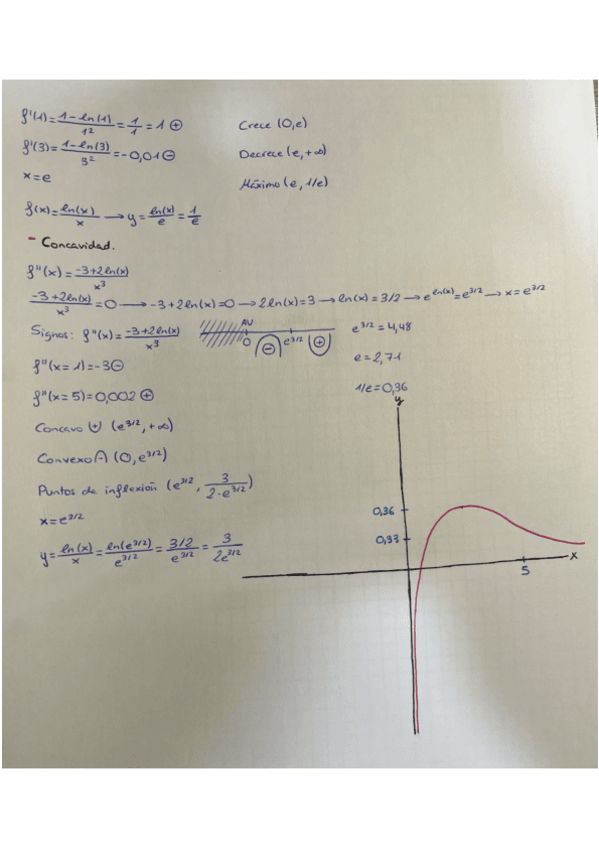 f'(1)=\frac{1-ln(1)}{1^2}=\frac{1}{1}=1 ⊕ Crece (0,e)
f'(3)=\frac{1-ln(3)}{3^2}=-0,01 ⊖ Decrece (e,+∞)
x=e Máximo (e, 1/e)
f(x)=\frac{ln(x)}{x} → y=\frac{ln(x)}{e}=\frac{1}{e}
- Concavidad.
f''(x)=\frac{-3+2ln(x)}{x^3}
\frac{-3+2ln(x)}{x^3}=0 → -3+2ln(x)=0 → 2ln(x)=3 → ln(x)=3/2 → e^{ln(x)}=e^{3/2} → x=e^{3/2}
Signos: f''(x)=\frac{-3+2ln(x)}{x^3} AV 0 ⊖ e^{3/2} ⊕ e^{3/2}=4,48
f''(x=1)=-3 ⊖ e=2,71
f''(x=5)=0,002 ⊕ 1/e=0,36
Concavo ∪ (e^{3/2},+∞)
Convexo ∩ (0,e^{3/2})
Puntos de inflexión (e^{3/2}, \frac{3}{2·e^{3/2}})
x=e^{3/2}
y=\frac{ln(x)}{x}=\frac{ln(e^{3/2})}{e^{3/2}}=\frac{3/2}{e^{3/2}}=\frac{3}{2e^{3/2}}
y
0,36
0,33
x
5